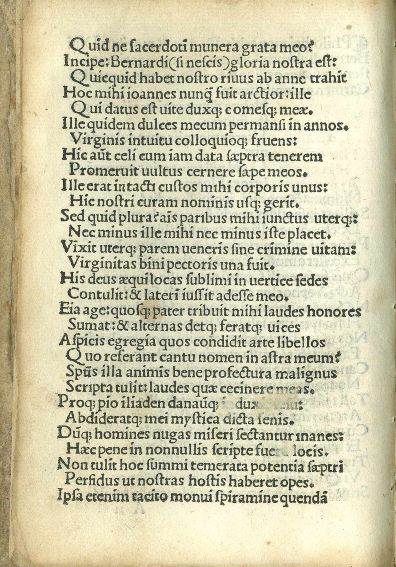 Quid ne sacerdoti munera grata meo?
Incipe: Bernardi (si nescis) gloria nostra est:
Quicquid habet nostro riuus ab amne trahit
Hoc mihi ioannes nunq̃ fuit arctior: ille
Qui datus est uite duxq; comesq; meæ.
Ille quidem dulces mecum permansi in annos.
Virginis intuitu colloquioq; fruens:
Hic aũt celi eum iam data sæptra tenerem
Promeruit uultus cernere sæpe meos.
Ille erat intacti custos mihi corporis unus:
Hic nostri curam nominis usq; gerit.
Sed quid plura? aĩs paribus mihi iunctus uterq;:
Nec minus ille mihi nec minus iste placet.
Vixit uterq; parem ueneris sine crimine uitam:
Virginitas bini pectoris una fuit.
His deus æqui locas sublimi in uertice sedes
Contulit: & lateri iussit adesse meo.
Eia age: quosq; pater tribuit mihi laudes honores
Sumat: & alternas detq; feratq; uices
Aspicis egregia quos condidit arte libellos
Quo referant cantu nomen in astra meum?
Spũs illa animis bene profectura malignus
Scripta tulit: laudes quæ cecinere meas.
Proq; pio iliaden danauq;
Abdideratq; mei mystica dicta senis.
Dũq; homines nugas miseri sectantur inanes:
Hæc pene in nonnullis scripte locis.
Non tulit hoc summi temerata potentia sæptri
Perfidus ut nostras hostis haberet opes.
Ipsa etenim tacito monui spiramine quendã